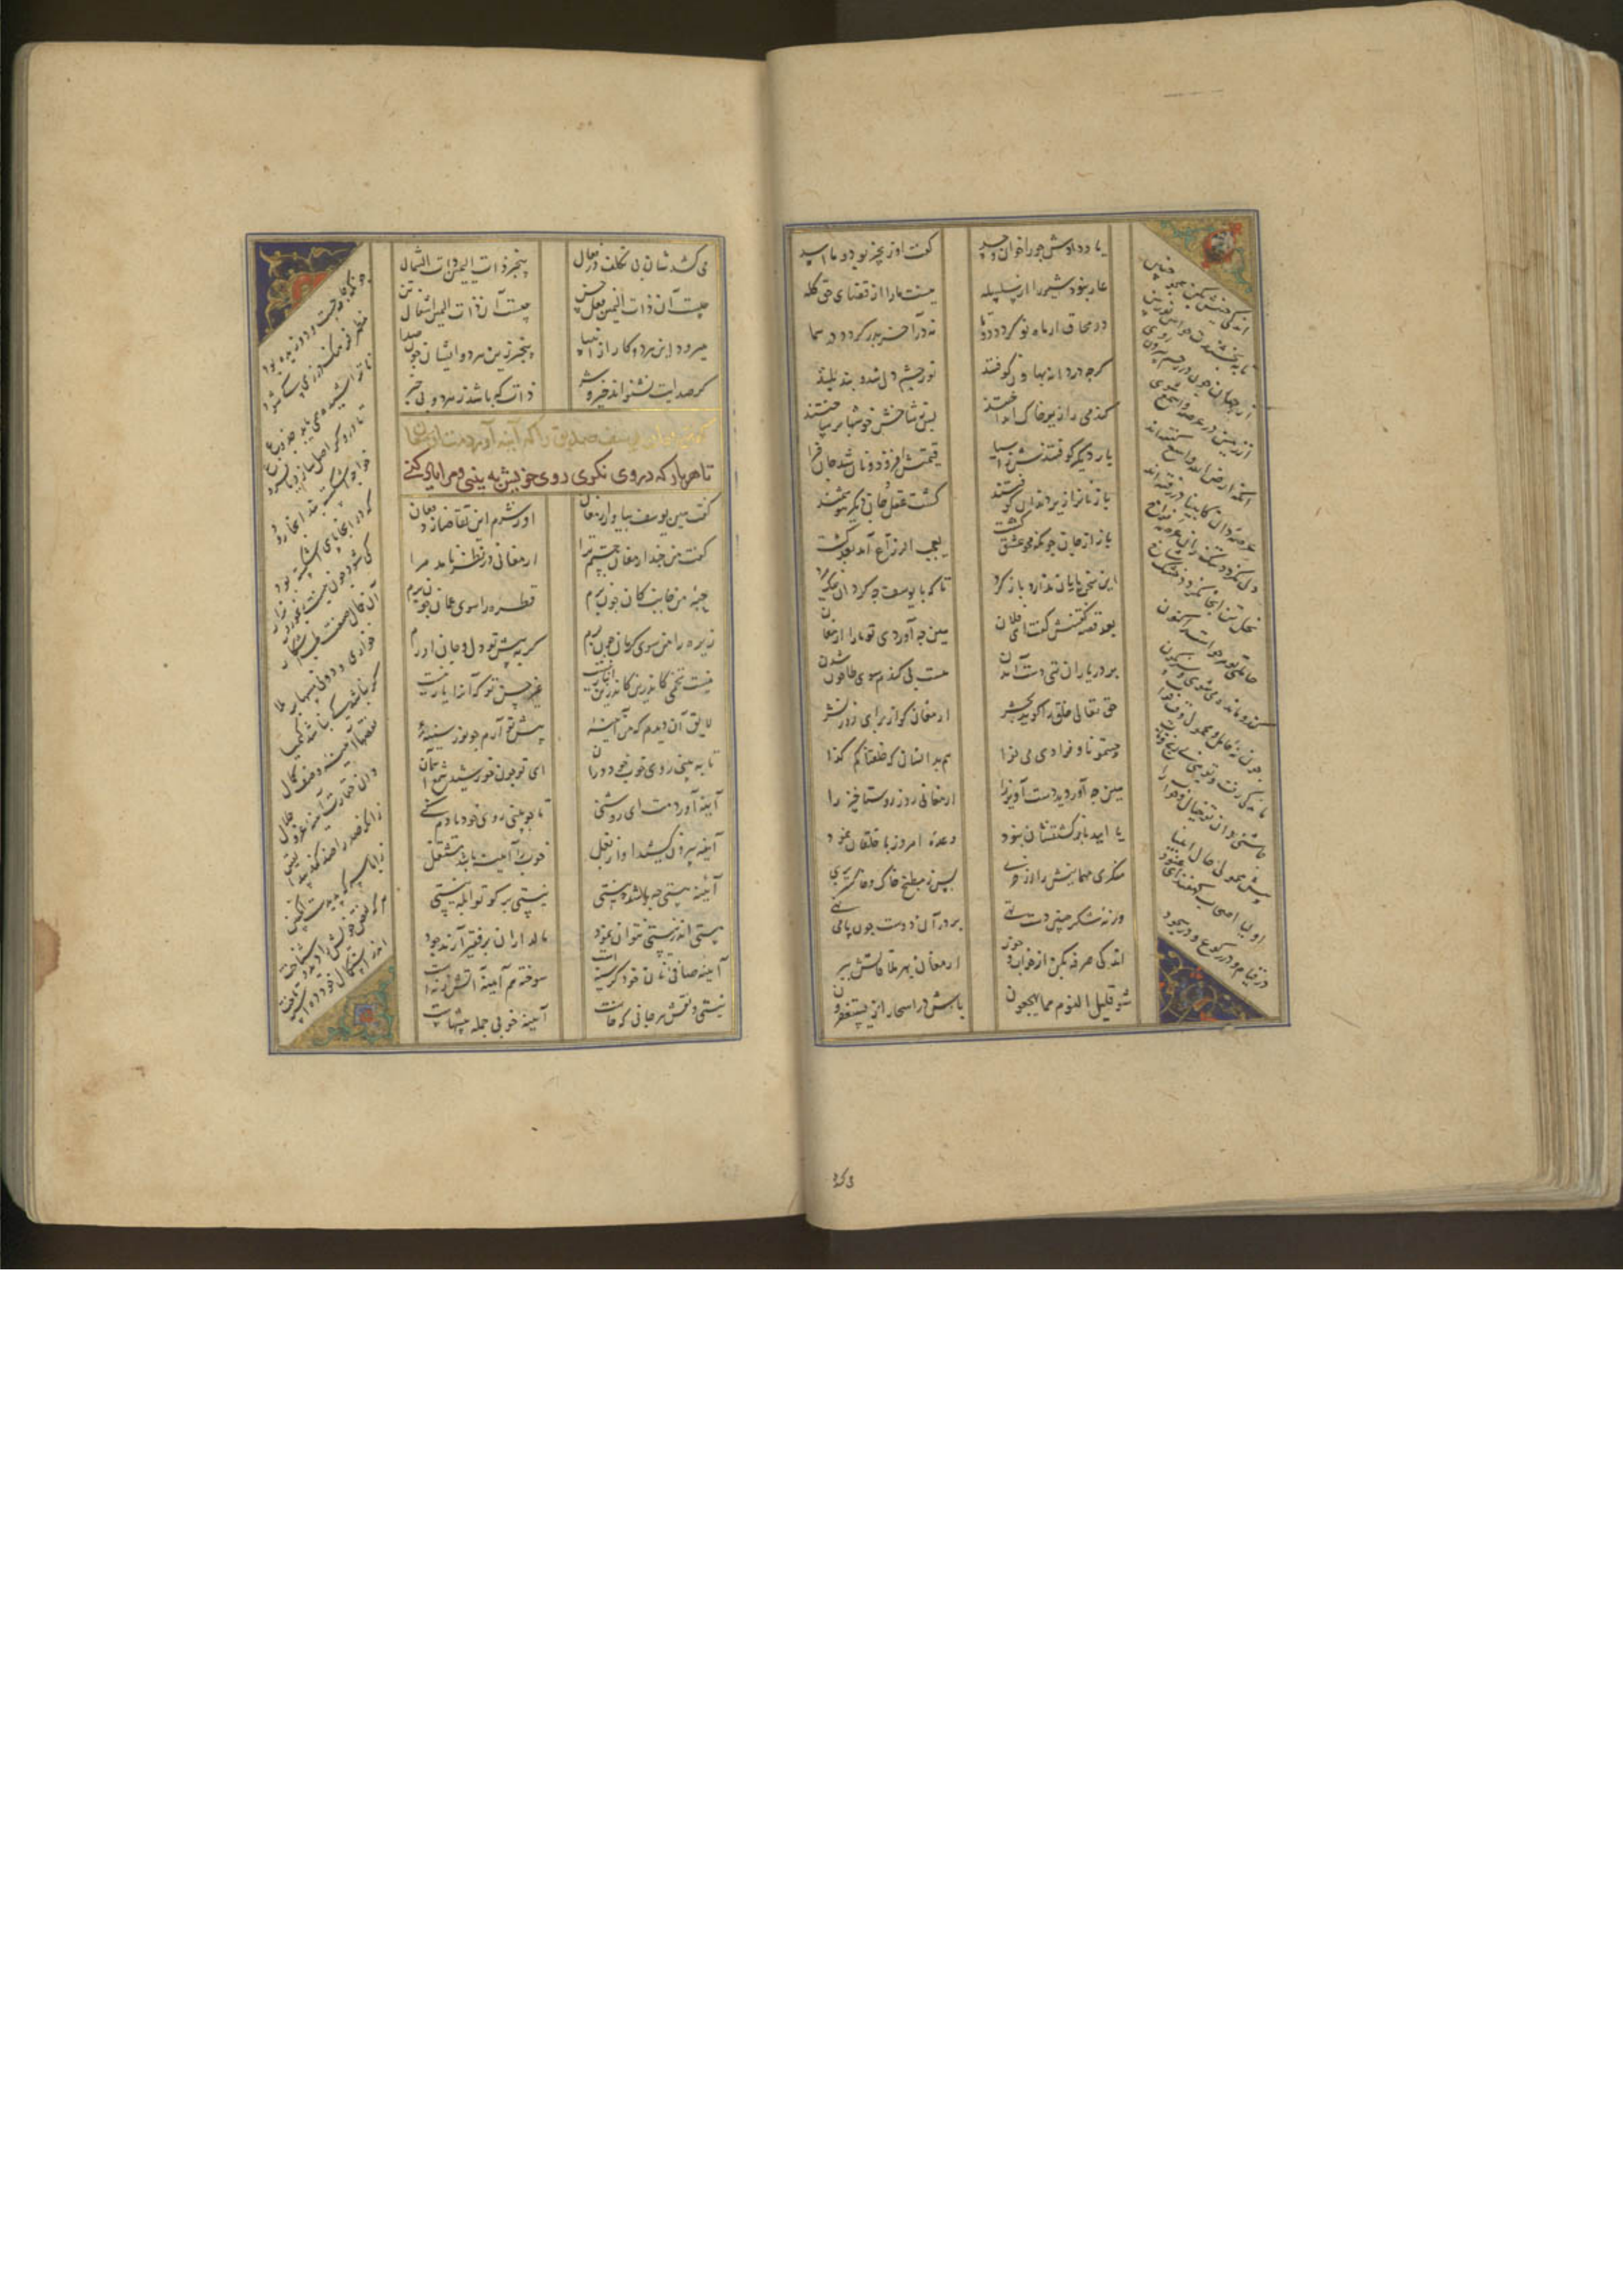 یاد دادش جور اخوان و حسد گفت او زنجیر بود و ما اسد
عار نبود شیر را از سلسله نیست ما را از قضای حق گله
در محاق ار ماه نو گردد دوتا نه در آخر بدر گردد در سما
گرچه دردانه بهاون کوفتند نور چشم و دل شد و بیند بلند
گندمی را زیر خاک انداختند پس ز شاخش خوشها بر ساختند
بار دیگر کوفتندش ز آسیا قیمتش افزود و نان شد جان فزا
باز نانرا زیر دندان کوفتند گشت عقل و جان هوشمند
باز آن جان چونکه محو عشق گشت یعجب الزراع آمد بعد کشت
این سخن پایان ندارد باز گرد تا که با یوسف چه کرد آن نیک مرد
بعد قصه گفتنش گفت ای فلان هین چه آوردی تو ما را ارمغان
بر در یاران تهی دست آمدن هست بی گندم سوی طاحون شدن
حق تعالی خلق را گوید بحشر ارمغان کو از برای روز نشر
جئتمونا و فرادی بی نوا هم بدانسان که خلقناکم کذا
هین چه آوردید دست آویز را ارمغانی روز رستاخیز را
یا امید بازگشتنتان نبود وعده امروز باطلتان نمود
منکری مهمانیش را از خری پس ز مطبخ خاک و خاکستر بری
ور نه منکر چنین دست تهی بر در آن دوست چون پا می نهی
اندکی صرفه بکن از خواب و خور ارمغان بهر ملاقاتش ببر
شو قلیل النوم مما یهجعون باش در اسحار از یستغفرون
اندکی جنبش بکن همچون جنین
تا ببخشندت حواس نوربین
از جهان چون رحم بیرون روی
از زمین در عرصه واسع شوی
آنکه ارض الله واسع گفته اند
عرصه دان کانبیا در رفته اند
دل نگردد تنگ زان عرصه فراخ
نخل تر آنجا نگردد خشک شاخ
حاملی تو مر حواست را کنون
کند و مانده می شوی و سرنگون
چونکه محمولی نه حامل وقت خواب
ماندگی رفت و شدی بی رنج و تاب
چاشنی دان تو حال خواب را
پیش محمولی حال اولیا
اولیا اصحاب کهفند ای عنود
در قیام و در رکوع و در سجود
می کشد
می کشدشان بی تکلف در فعال بیخبر ذات الیمین ذات الشمال
چیست آن ذات الیمین فعل حسن چیست آن ذات الشمال اشغال تن
میرود این هر دو کار از انبیا بیخبر زین هر دو ایشان چون صدا
گر صدایت بشنواند خیر و شر ذات که باشد ز هر دو بی خبر
گفتن مهمان یوسف صدیق را که آینه آوردمت ارمغان
تا هر بار که در وی نگری روی خویش به بینی و مرا یاد کنی
گفت یوسف هین بیاور ارمغان او ز شرم این تقاضا زد فغان
گفت من چند ارمغان جستم ترا ارمغانی در نظر نامد مرا
حبه را جانب کان چون برم قطره را سوی عمان چون برم
زیره را من سوی کرمان چون برم گر به پیش تو دل و جان آورم
نیست تخمی کاندرین انبار نیست غیر حسن تو که آنرا یار نیست
لایق آن دیدم که من آیینه پیش تو آرم چو نور سینه
تا به بینی روی خوب خود در آن ای تو چون خورشید شمع آسمان
آینه آوردمت ای روشنی تا چو بینی روی خود یادم کنی
آینه بیرون کشید او از بغل خوب را آیینه باشد مشتغل
آینه هستی چه باشد نیستی نیستی بر گر تو ابله نیستی
هستی اندر نیستی بتوان نمود مالداران بر فقیر آرند جود
آینه صافی نان خود گرسنه است سوخته هم آینه آتش زنه است
نیستی و نقش هر جائی که خاست آینه خوبی جمله پیشهاست
چونکه جامه چست و دوزیده بود
مظهر فرهنگ درزی کی شود
ناتراشیده همی باید جذوع
تا دروگر اصل سازد یا فروع
خواجه اشکسته بند آنجا رود
که در آنجا پای اشکسته بود
کی شود چون نیست رنجور نزار
آن جمال صنعت طب آشکار
خواری و دونی مسها بر ملا
گر نباشد کی نماید کیمیا
نقصها آیینه وصف کمال
وان حقارت آینه عز و جلال
زانکه ضد را ضد کند پیدا یقین
زانکه با سرکه پدیدست انگبین
هر که نقص خویش را دید و شناخت
اندر استکمال خود دو اسبه تاخت